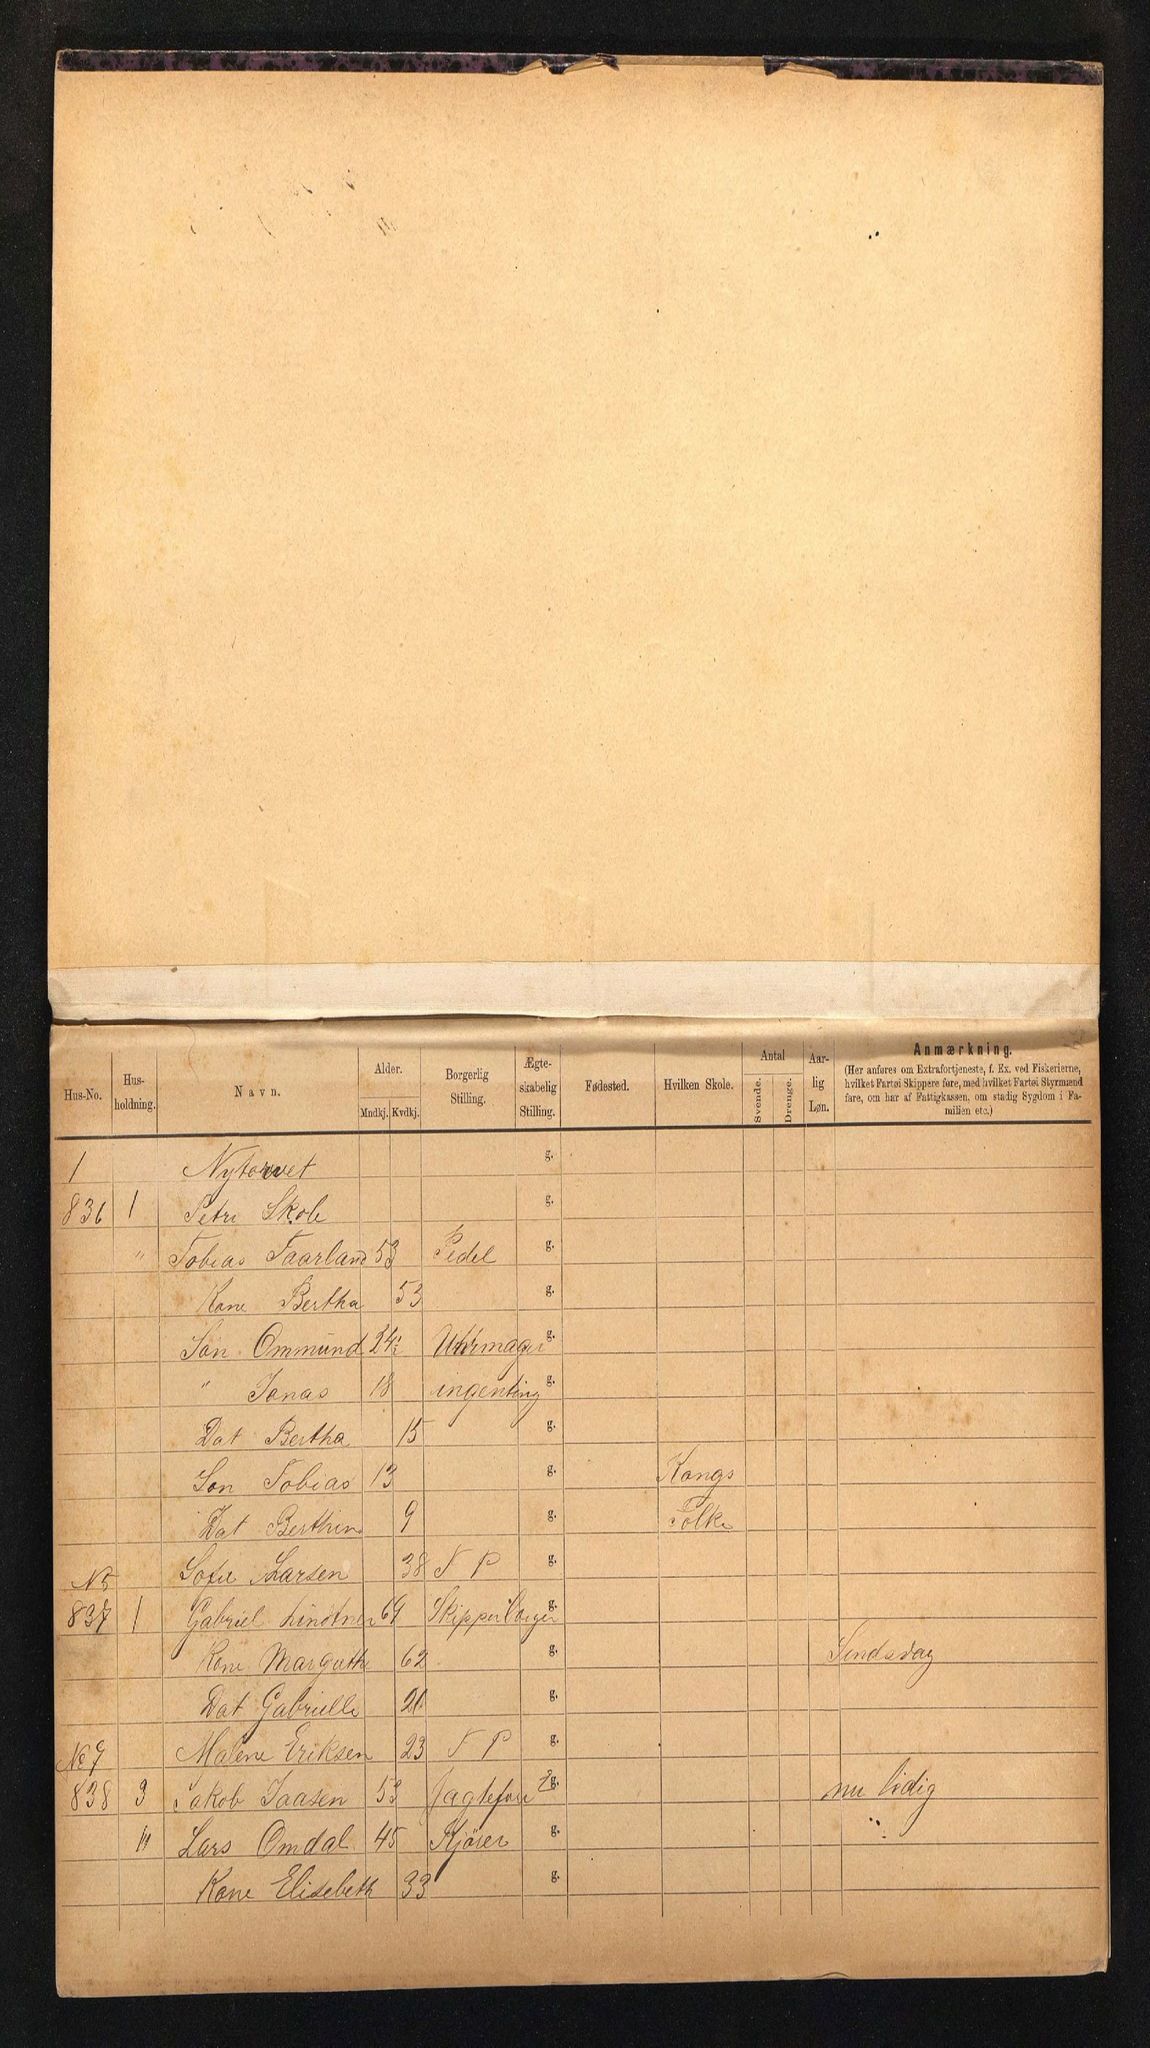 Hus-No. Hus-holdning. Navn. Alder. Mndkj. Kvdkj. Borgerlig Stilling. Ægte-skabelig Stilling. Fødested. Hvilken Skole. Antal Svende. Drenge. Aar-lig Løn. Anmærkning.
(Her anføres om Extrafortjeneste, f. Ex. ved Fiskerierne,
hvilket Fartøi Skippere føre, med hvilket Fartøi Styrmænd
fare, om har af Fattigkassen, om stadig Sygdom i Fa-
milien etc.)
1 Nytorvet g.
836 1 Petri Skole g.
" Tobias Taarland 53 Pedel g.
Kone Bertha 53 g.
Søn Ommund 24 Uhrmager g.
" Jonas 18 ingenting g.
Dat Bertha 15 g.
Søn Tobias 13 g. Kongs
Dat Berthine 9 g. Folke
Sofie Larsen 38 T P g.
No 5
837 1 Gabriel Lindtner 69 Skipperborger g.
Kone Margrethe 62 g. Sindsvag
Dat Gabrielle 21 g.
Malene Eriksen 23 T P g.
No 7
838 3 Jakob Jaasen 53 Jagtefører g. nu lidig
" Lars Omdal 45 Kjører g.
Kone Elisebeth 33 g.